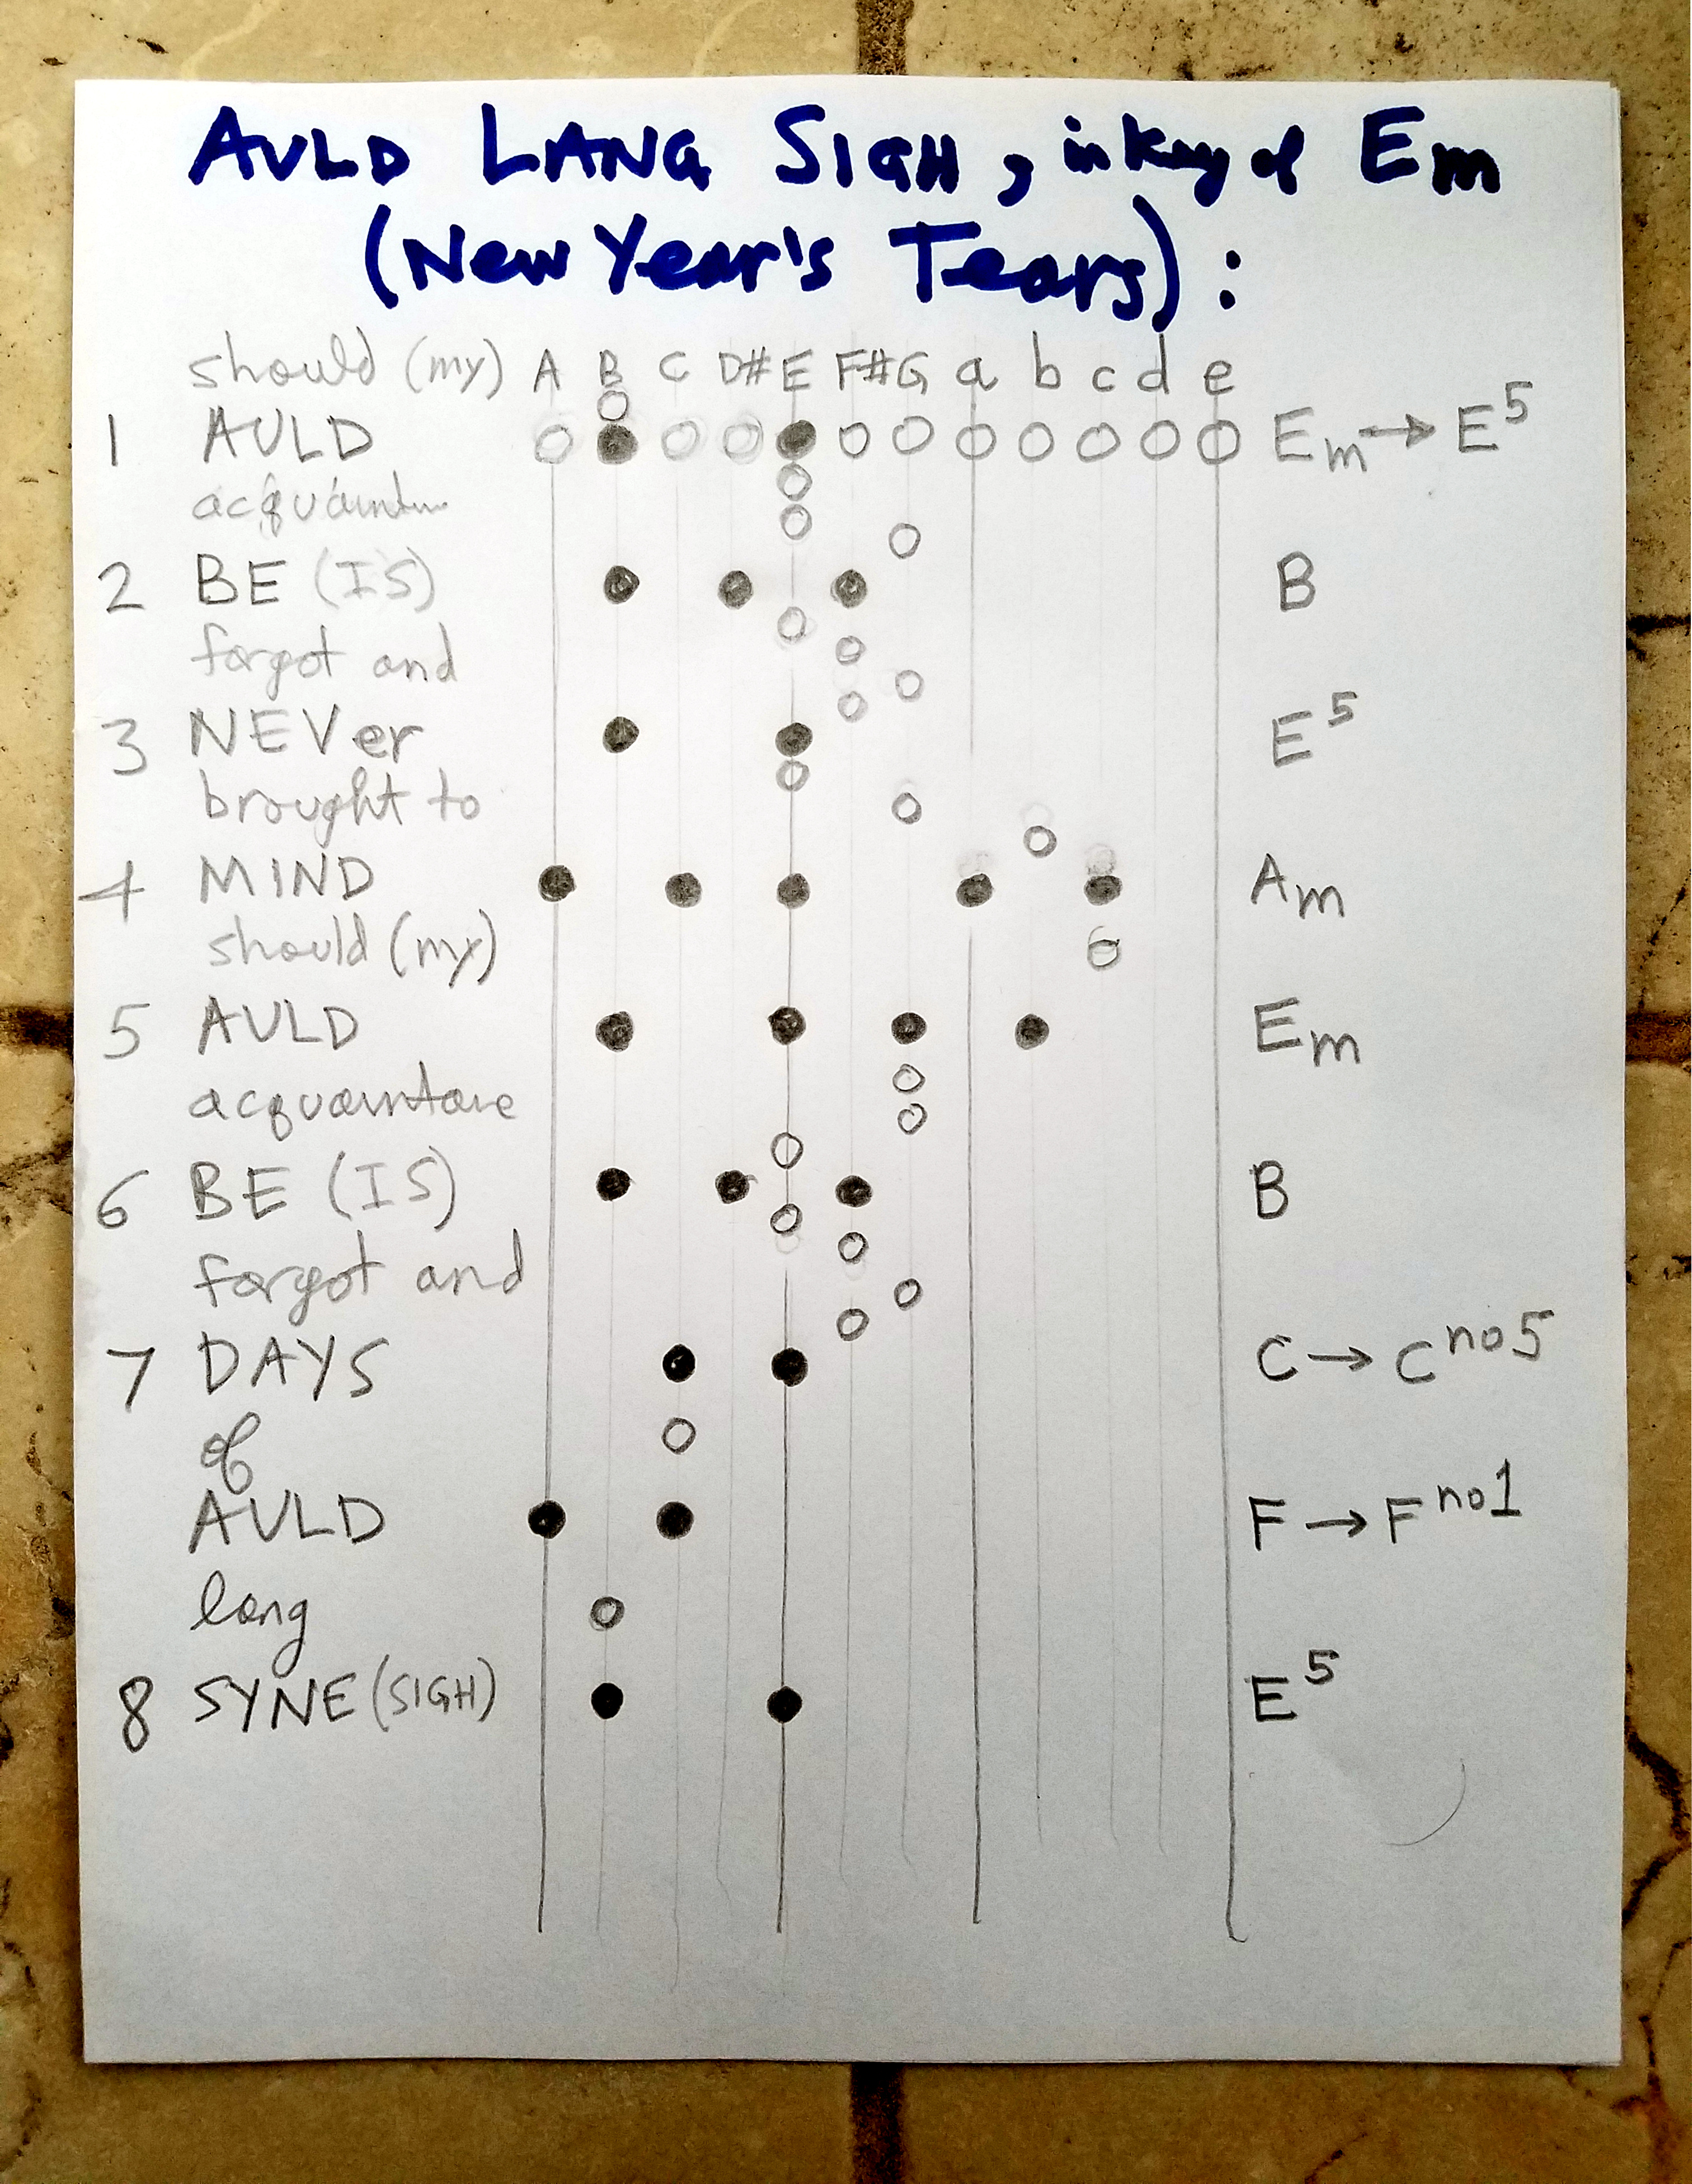 AULD LANG SIGH, in key of Em
(New Year's Tears):
should (my) A B C D# E F# G a b c d e
1 AULD Em → E5
2 BE (IS) B
forgot and
3 NEVer E5
brought to
4 MIND Am
should (my)
5 AULD Em
acquaintance
6 BE (IS) B
forgot and
7 DAYS C → C no5
of
AULD F → F no1
long
8 SYNE (SIGH) E5